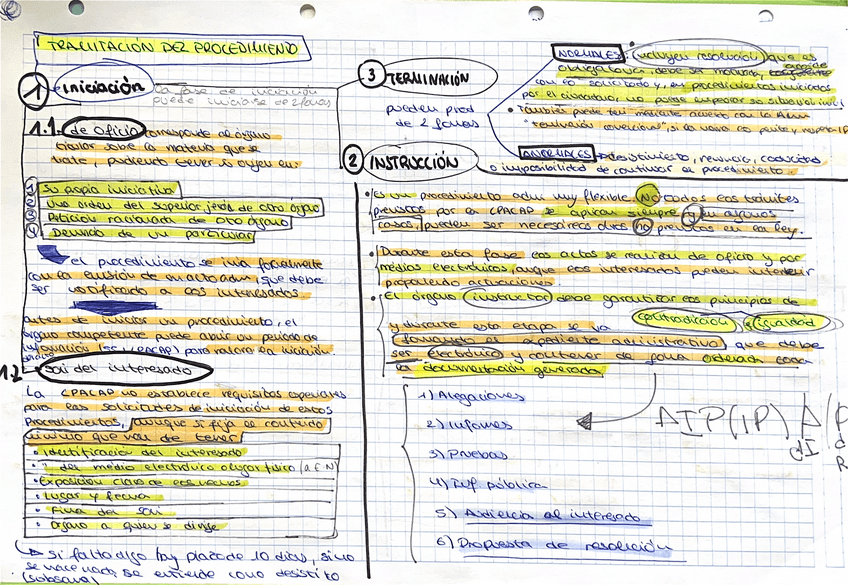 TRAMITACIÓN DEL PROCEDIMIENTO
1 iniciación
la fase de iniciación
puede iniciarse de 2 formas
1.1. de oficio corresponde al órgano
titular sobre la materia que se
trate, pudiendo tener su origen en:
1 Su propia iniciativa
2 una orden del superior, jefe de otro órgano
3 Petición razonada de otro órgano
4 Denuncia de un particular
el procedimiento se inicia formalmente
con la emisión de un acto adm, que debe
ser notificado a los interesados.
antes de iniciar un procedimiento, el
órgano competente puede abrir un periodo de
información (55 LPACAP) para valorar la iniciación.
1.2 Soli del interesado
La LPACAP no establece requisitos especiales
para las solicitudes de iniciación de estos
procedimientos, aunque sí fija el contenido
mínimo que han de tener
• Identificación del interesado
• " del medio electrónico o lugar físico (a e N)
• Exposición clara de los hechos
• Lugar y fecha
• Firma del soli
• Órgano a quien se dirige
si falta algo hay plazo de 10 días, si no
se hace nada, se entiende como desistito
(subsana)
3 TERMINACIÓN
pueden prod
de 2 formas
NORMALES: incluyen resolución que es
obligatoria, debe ser motivada,
con lo solicitado y, en procedimientos iniciados
por el ciudadano, no puede empeorar su situación inicial
• También puede ter mediante acuerdo con la Adm
"terminación convencional", si la norma lo permite y respeta IP
ANORMALES → desistimiento, renuncia, caducidad
o imposibilidad de continuar el procedimiento.
2 INSTRUCCIÓN
• Es un procedimiento adm muy flexible. No todos los trámites
previstos por la LPACAP se aplican siempre y en algunos
casos, pueden ser necesarios otros no previstos en la ley.
• Durante esta fase los actos se realizan de oficio y por
medios electrónicos, aunque los interesados pueden intervenir
proponiendo actuaciones.
• El órgano instructor debe garantizar los principios de
contradicción e igualdad
y durante esta etapa se va
formando el expediente administrativo que debe
ser electrónico y contener de forma ordenada toda
la documentación generada
1) Alegaciones
2) Informes
3) Pruebas
4) Inf. pública
5) Audiencia al interesado
6) Propuesta de resolución
AIP(IP) A(P
dI
d
R